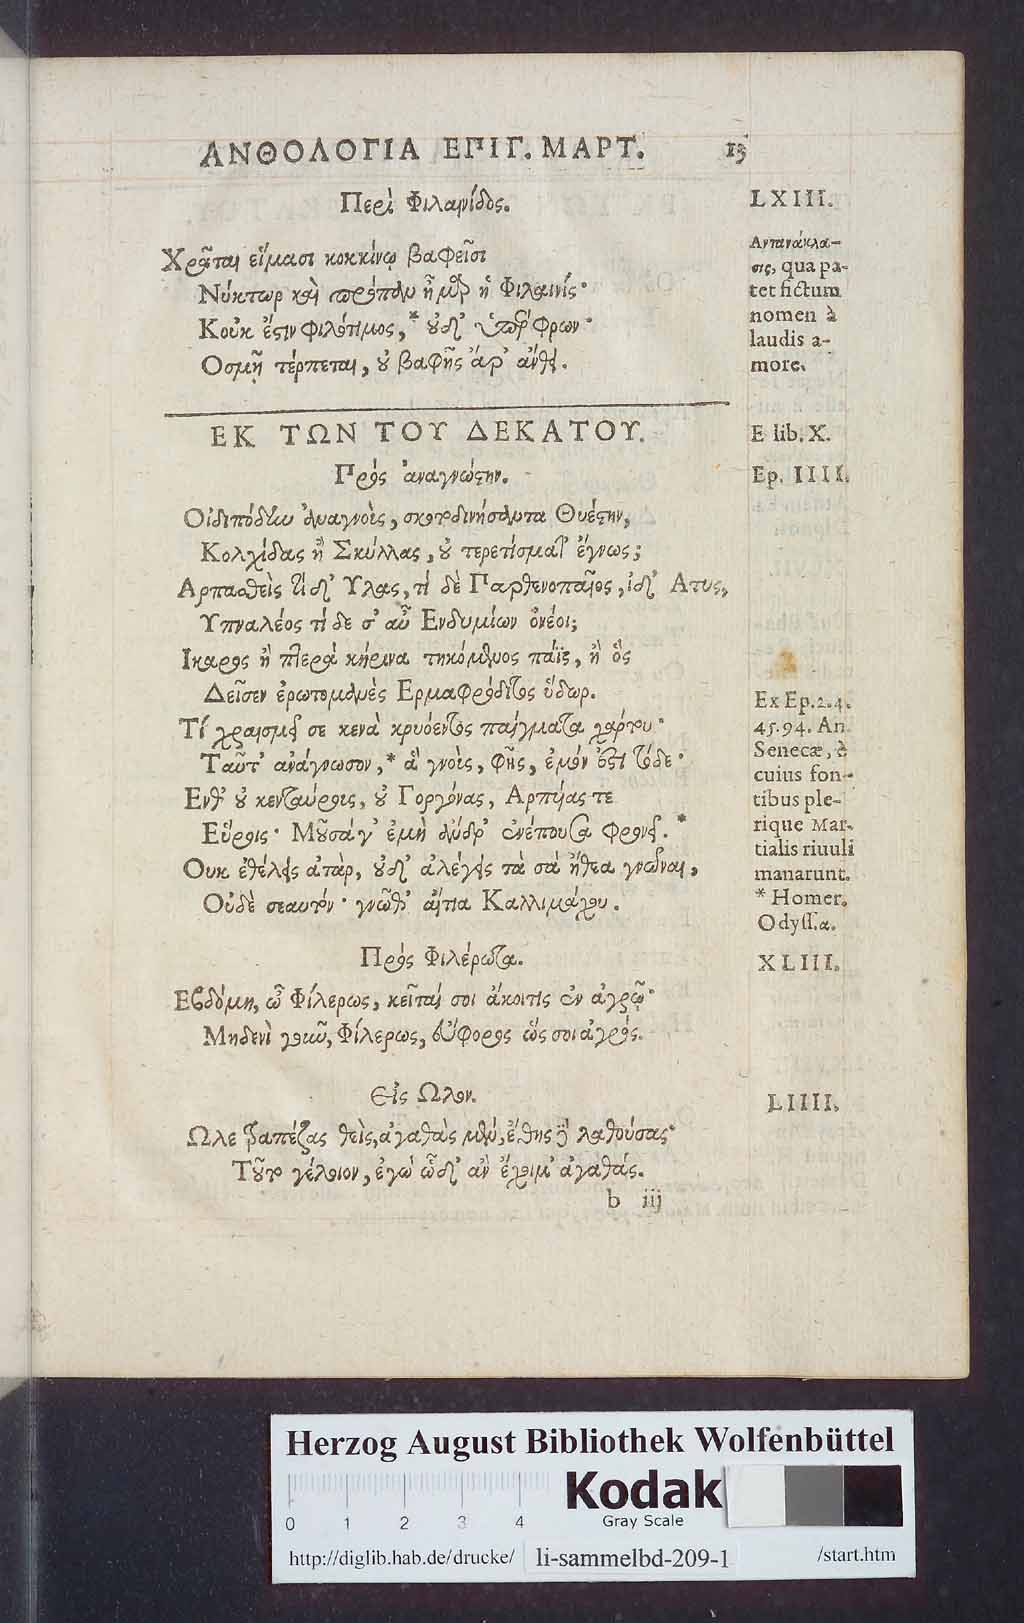 ΑΝΘΟΛΟΓΙΑ ΕΠΙΓ. ΜΑΡΤ. 13
Περὶ Φιλαινίδος.
LXIII.
Χρᾶται εἵμασι κοκκίνῳ βαφεῖσι
Νύκτωρ καὶ πρέπον ἦμαρ ἡ Φιλαινίς·
Κοὐκ ἔστιν φιλότιμος, * οὐδ' ὑπέρφρων·
Οσμῇ τέρπεται, οὐ βαφῆς ἄρ' ἄνθει.
Αντανάκλα-
σις, qua pa-
tet fictum
nomen à
laudis a-
more.
ΕΚ ΤΩΝ ΤΟΥ ΔΕΚΑΤΟΥ.
E lib. X.
Πρὸς ἀναγνώστην.
Ep. IIII.
Οἰδιπόδην ἀναγνοὶς, σκορδινήσαντα Θυέστην,
Κολχίδας ἢ Σκύλλας, οὐ τερετίσματ' ἔγνως;
Αρπαχθεὶς τί δ' Υλας, τί δὲ Παρθενοπαῖος, ἰδ' Ατυς,
Υπναλέος τί δε σ' αὖ Ενδυμίων ὀνέοι;
Ικαρος ἢ πτερὰ κήρινα τηκόμενος πάϊς, ἢ ὃς
Δεῖσεν ἐρωτομανὲς Ερμαφρόδιτος ὕδωρ.
Τί χραισμεῖ σε κενὰ κρυόεντος παίγματα χάρτου·
Ταῦτ' ἀνάγνωσον, * ἃ γνοὶς, φῆς, ἐμόν ἐστι τόδε·
Ενθ' οὐ κενταύροις, οὐ Γοργόνας, Αρπύιας τε
Εὕροις· Μοῦσά γ' ἐμὴ ἄνδρ' ἐνέπουσα φρονεῖ. *
Ουκ ἐθέλεις ἀτὰρ, οὐδ' ἀλέγεις τὰ σὰ ἤθεα γνῶναι,
Οὐδὲ σεαυτόν· γνῶθ' αἴτια Καλλιμάχου.
Ex Ep. 2. 4.
45. 94. An.
Senecæ, è
cuius fon-
tibus ple-
rique Mar-
tialis riuuli
manarunt.
* Homer.
Odyss. α.
Πρὸς Φιλέρωτα.
XLIII.
Εβδόμη, ὦ Φίλερως, κεῖταί σοι ἄκοιτις ἐν ἀγρῷ·
Μηδενὶ γοῦν, Φίλερως, εὔφορος ὥς σοι ἀγρός.
Εἰς Ωλον.
LIIII.
Ωλε τραπέζας θεὶς, ἀγαθὰς μὲν, ἔθης δὲ λαθούσας·
Τοῦτο γέλοιον, ἐγὼ ὧδ' ἂν ἔχοιμ' ἀγαθάς.
b iij
Herzog August Bibliothek Wolfenbüttel
Kodak
Gray Scale
0 1 2 3 4
http://diglib.hab.de/drucke/ li-sammelbd-209-1 /start.htm